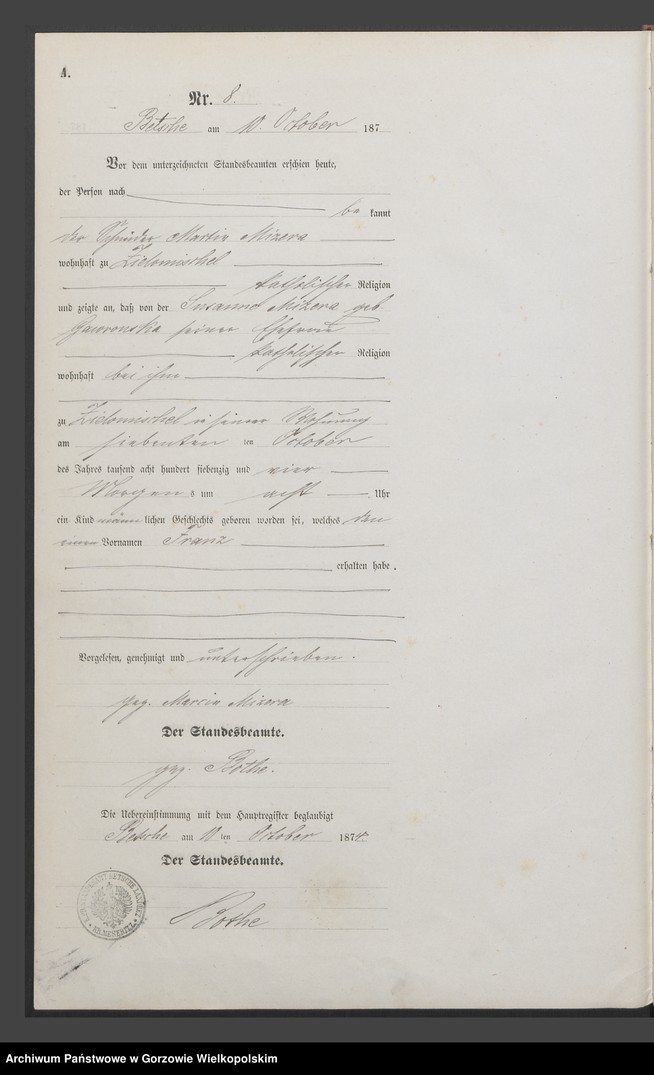 A.
Nr. 8.
Betsche am 10. October 187
Vor dem unterzeichneten Standesbeamten erschien heute,
der Person nach
bekannt
der Martin Mizera
wohnhaft zu Zielomischel
katholischer Religion
und zeigte an, daß von der Susanna Mizera geb.
Gawronska seiner Ehefrau
katholischer Religion
wohnhaft bei ihm
zu Zielomischel in seiner Wohnung
am siebenten ten October
des Jahres tausend acht hundert siebenzig und vier
Morgens um acht Uhr
ein Kind männlichen Geschlechts geboren worden sei, welches den
einen Vornamen Franz
erhalten habe.
Vorgelesen, genehmigt und unterschrieben.
gez. Marcin Mizera
Der Standesbeamte.
gez. Bothe.
Die Uebereinstimmung mit dem Hauptregister beglaubigt
Betsche am 10 ten October 1874.
Der Standesbeamte.
Bothe
BETSCHE
KR. MESERITZ
Archiwum Państwowe w Gorzowie Wielkopolskim